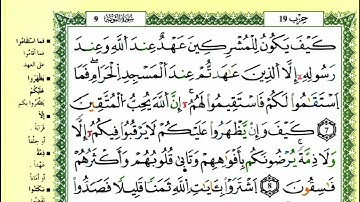 حزب 19
سورة التوبة
9
كَيْفَ يَكُونُ لِلْمُشْرِكِينَ عَهْدٌ عِندَ اللَّهِ وَعِندَ
رَسُولِهِ إِلَّا الَّذِينَ عَاهَدتُّمْ عِندَ الْمَسْجِدِ الْحَرَامِ فَمَا
اسْتَقَامُوا لَكُمْ فَاسْتَقِيمُوا لَهُمْ إِنَّ اللَّهَ يُحِبُّ الْمُتَّقِينَ
7 كَيْفَ وَإِن يَظْهَرُوا عَلَيْكُمْ لَا يَرْقُبُوا فِيكُمْ إِلًّا
وَلَا ذِمَّةً يُرْضُونَكُم بِأَفْوَاهِهِمْ وَتَأْبَى قُلُوبُهُمْ وَأَكْثَرُهُمْ
فَاسِقُونَ 8 اشْتَرَوْا بِآيَاتِ اللَّهِ ثَمَنًا قَلِيلًا فَصَدُّوا
فما استقاموا
فما أقاموا
على العهد
يظهروا
عليكم
يظفروا بكم
إلًّا
قرابة
أو حلفا
ذمة
عهدا